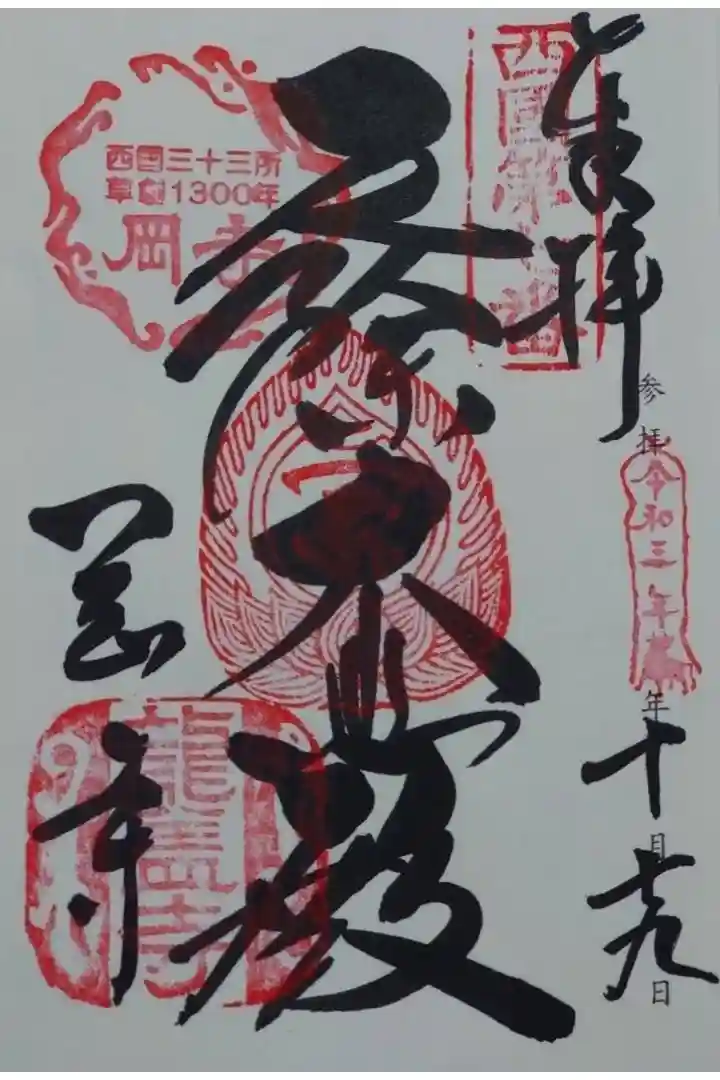 奉拝
西国第七番
参拝 令和三年
年十月十九日
殿
西国三十三所
草創1300年
岡寺
岡寺
龍蓋寺